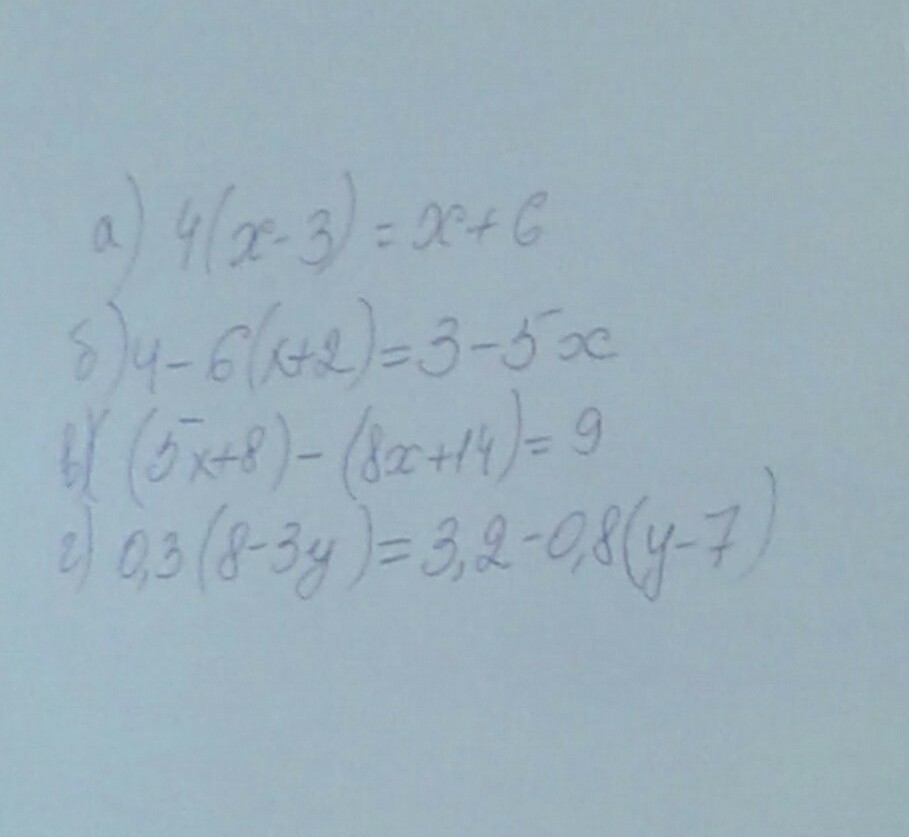 а) 4(x-3)=x+6
б) 4-6(x+2)=3-5x
в) (5x+8)-(8x+14)=9
г) 0,3(8-3y)=3,2-0,8(y-7)